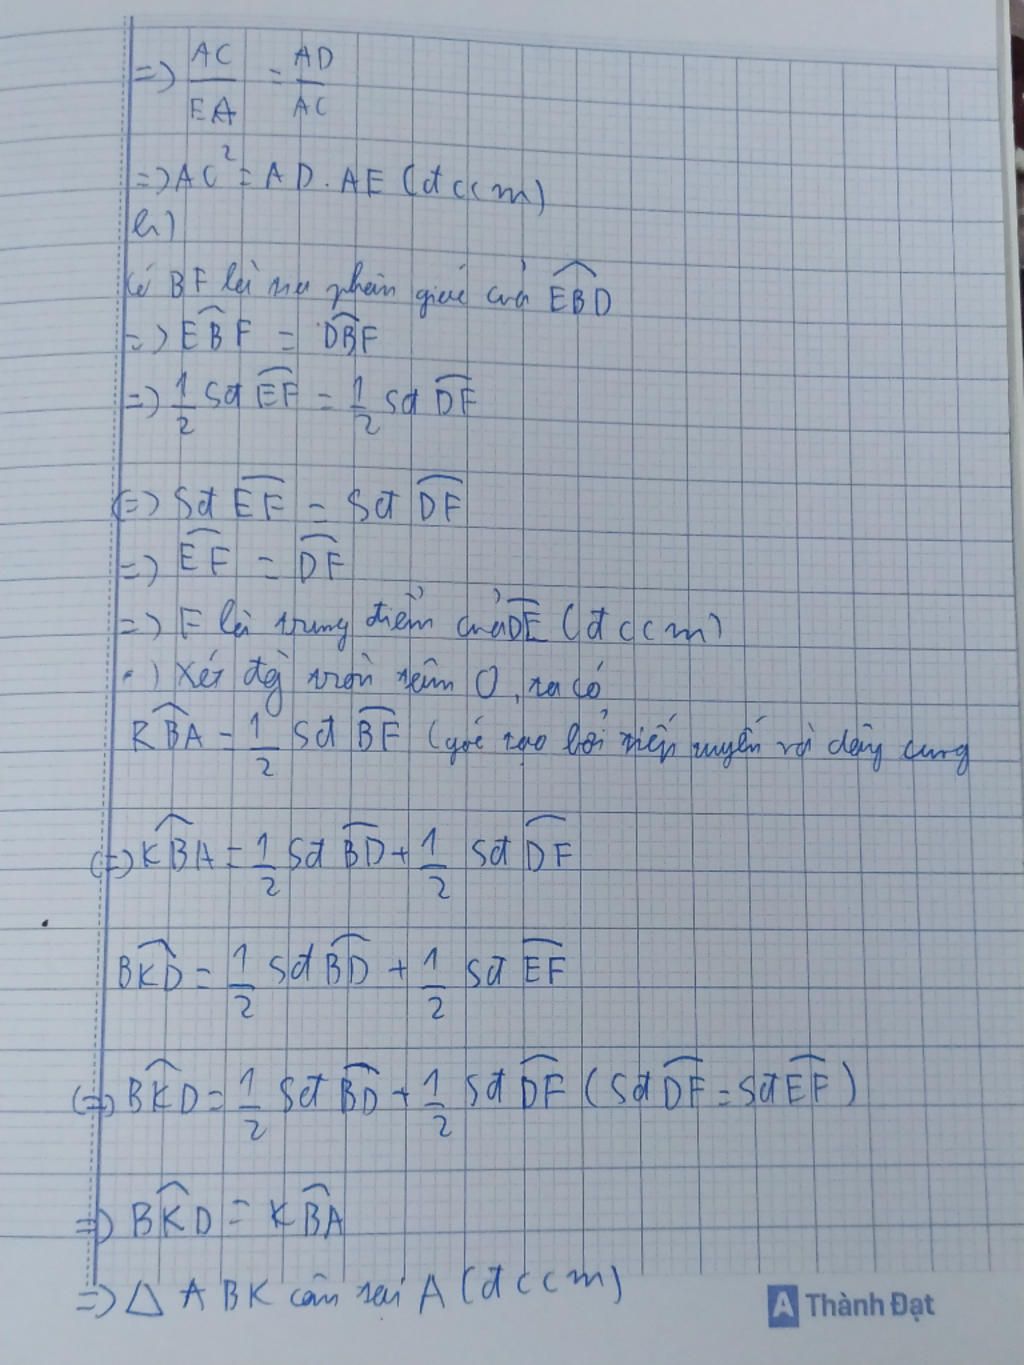 => AC/EA = AD/AC
=> AC² = AD.AE (đccm)
b)
Có BF là tia phân giác của EBD
=> EBF = DBF
=> 1/2 sđ EF = 1/2 sđ DF
<=> sđ EF = sđ DF
=> EF = DF
=> F là trung điểm của DE (đccm)
c) Xét đg tròn tâm O, ta có
KBA = 1/2 sđ BF (góc tạo bởi tiếp tuyến và dây cung
<=> KBA = 1/2 sđ BD + 1/2 sđ DF
BKD = 1/2 sđ BD + 1/2 sđ EF
<=> BKD = 1/2 sđ BD + 1/2 sđ DF (sđ DF = sđ EF)
=> BKD = KBA
=> △ ABK cân tại A (đccm)
A Thành Đạt